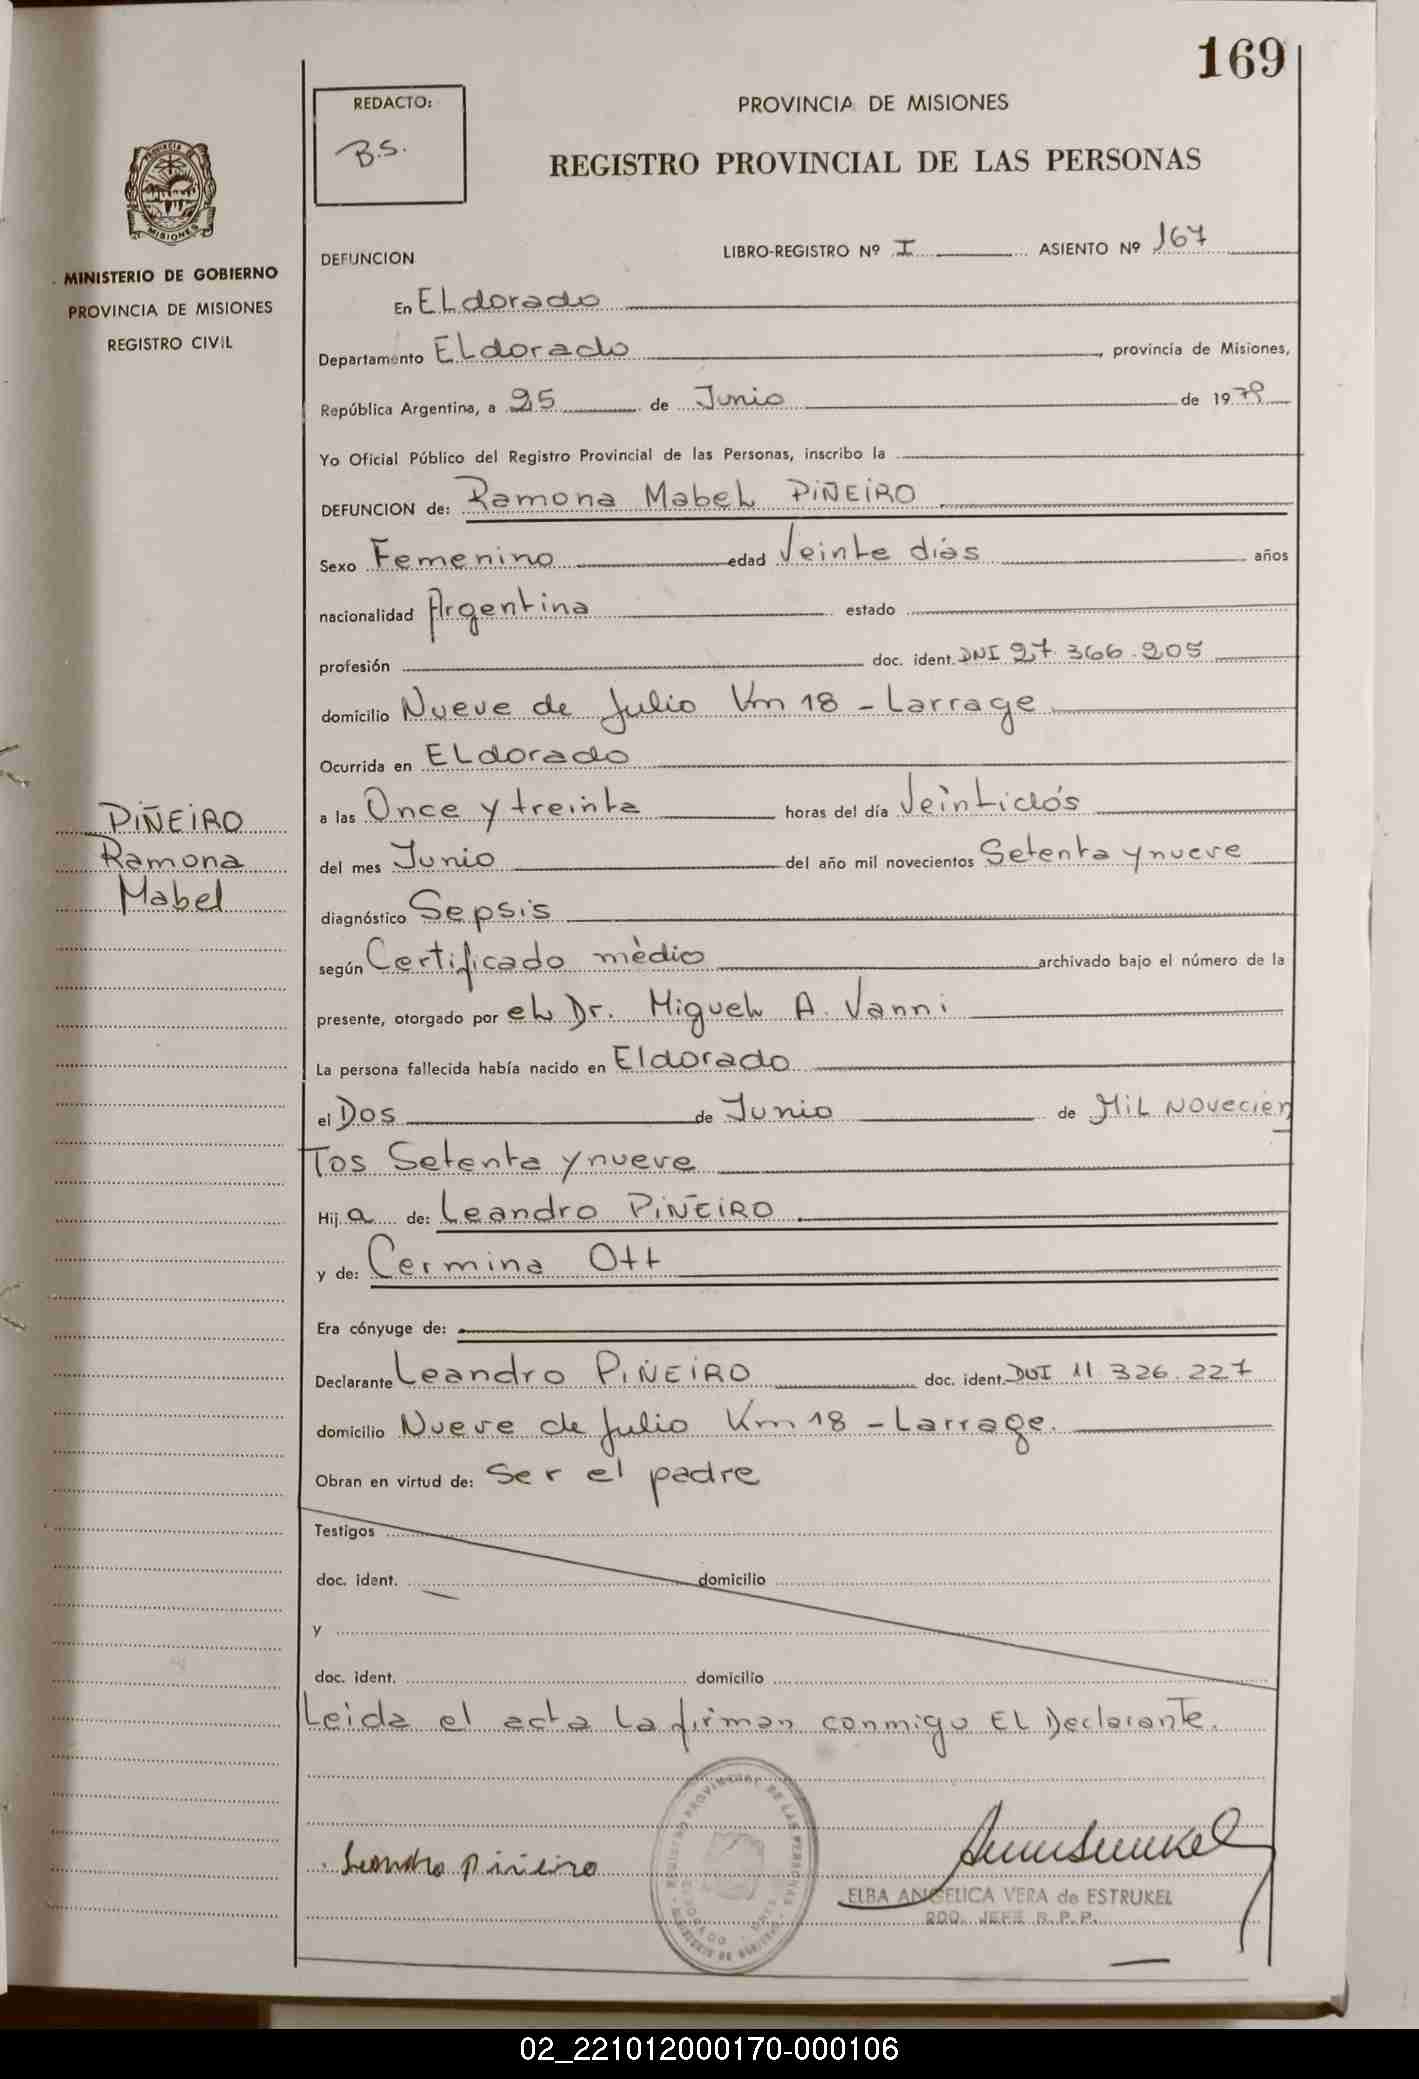 169
REDACTO:
B.S.
PROVINCIA DE MISIONES
REGISTRO PROVINCIAL DE LAS PERSONAS
MISIONES
MINISTERIO DE GOBIERNO
PROVINCIA DE MISIONES
REGISTRO CIVIL
DEFUNCION LIBRO-REGISTRO Nº I ASIENTO Nº 167
En ELdorado
Departamento ELdorado, provincia de Misiones,
República Argentina, a 25 de Junio de 1979
Yo Oficial Público del Registro Provincial de las Personas, inscribo la
DEFUNCION de: Ramona MabeL PiÑEiRO
Sexo Femenino edad Veinte dias años
nacionalidad Argentina estado
profesión doc. ident. DNI 27.366.205
domicilio Nueve de Julio Km 18 - Larrage
Ocurrida en ELdorado
a las Once y treinta horas del día Veintidós
PiÑEiRO
Ramona
Mabel
del mes Junio del año mil novecientos Setenta y nueve
diagnóstico Sepsis
según Certificado mèdico archivado bajo el número de la
presente, otorgado por eL Dr. MigueL A. Vanni
La persona fallecida había nacido en Eldorado
el Dos de Junio de MiL Novecien
Tos Setenta y nueve
Hij a de: Leandro PiÑEiRO
y de: Cermina Ott
Era cónyuge de:
Declarante Leandro PiÑEiRO doc. ident. DNI 11 326.227
domicilio Nueve de Julio Km 18 - Larrage.
Obran en virtud de: Ser el padre
Testigos
doc. ident. domicilio
y
doc. ident. domicilio
Leida el acta La firman conmigo EL Declarante.
Leandro piñeiro
REGISTRO PROVINCIAL DE LAS PERSONAS
ELBA ANGELICA VERA de ESTRUKEL
JEFE R.P.P.
02_221012000170-000106